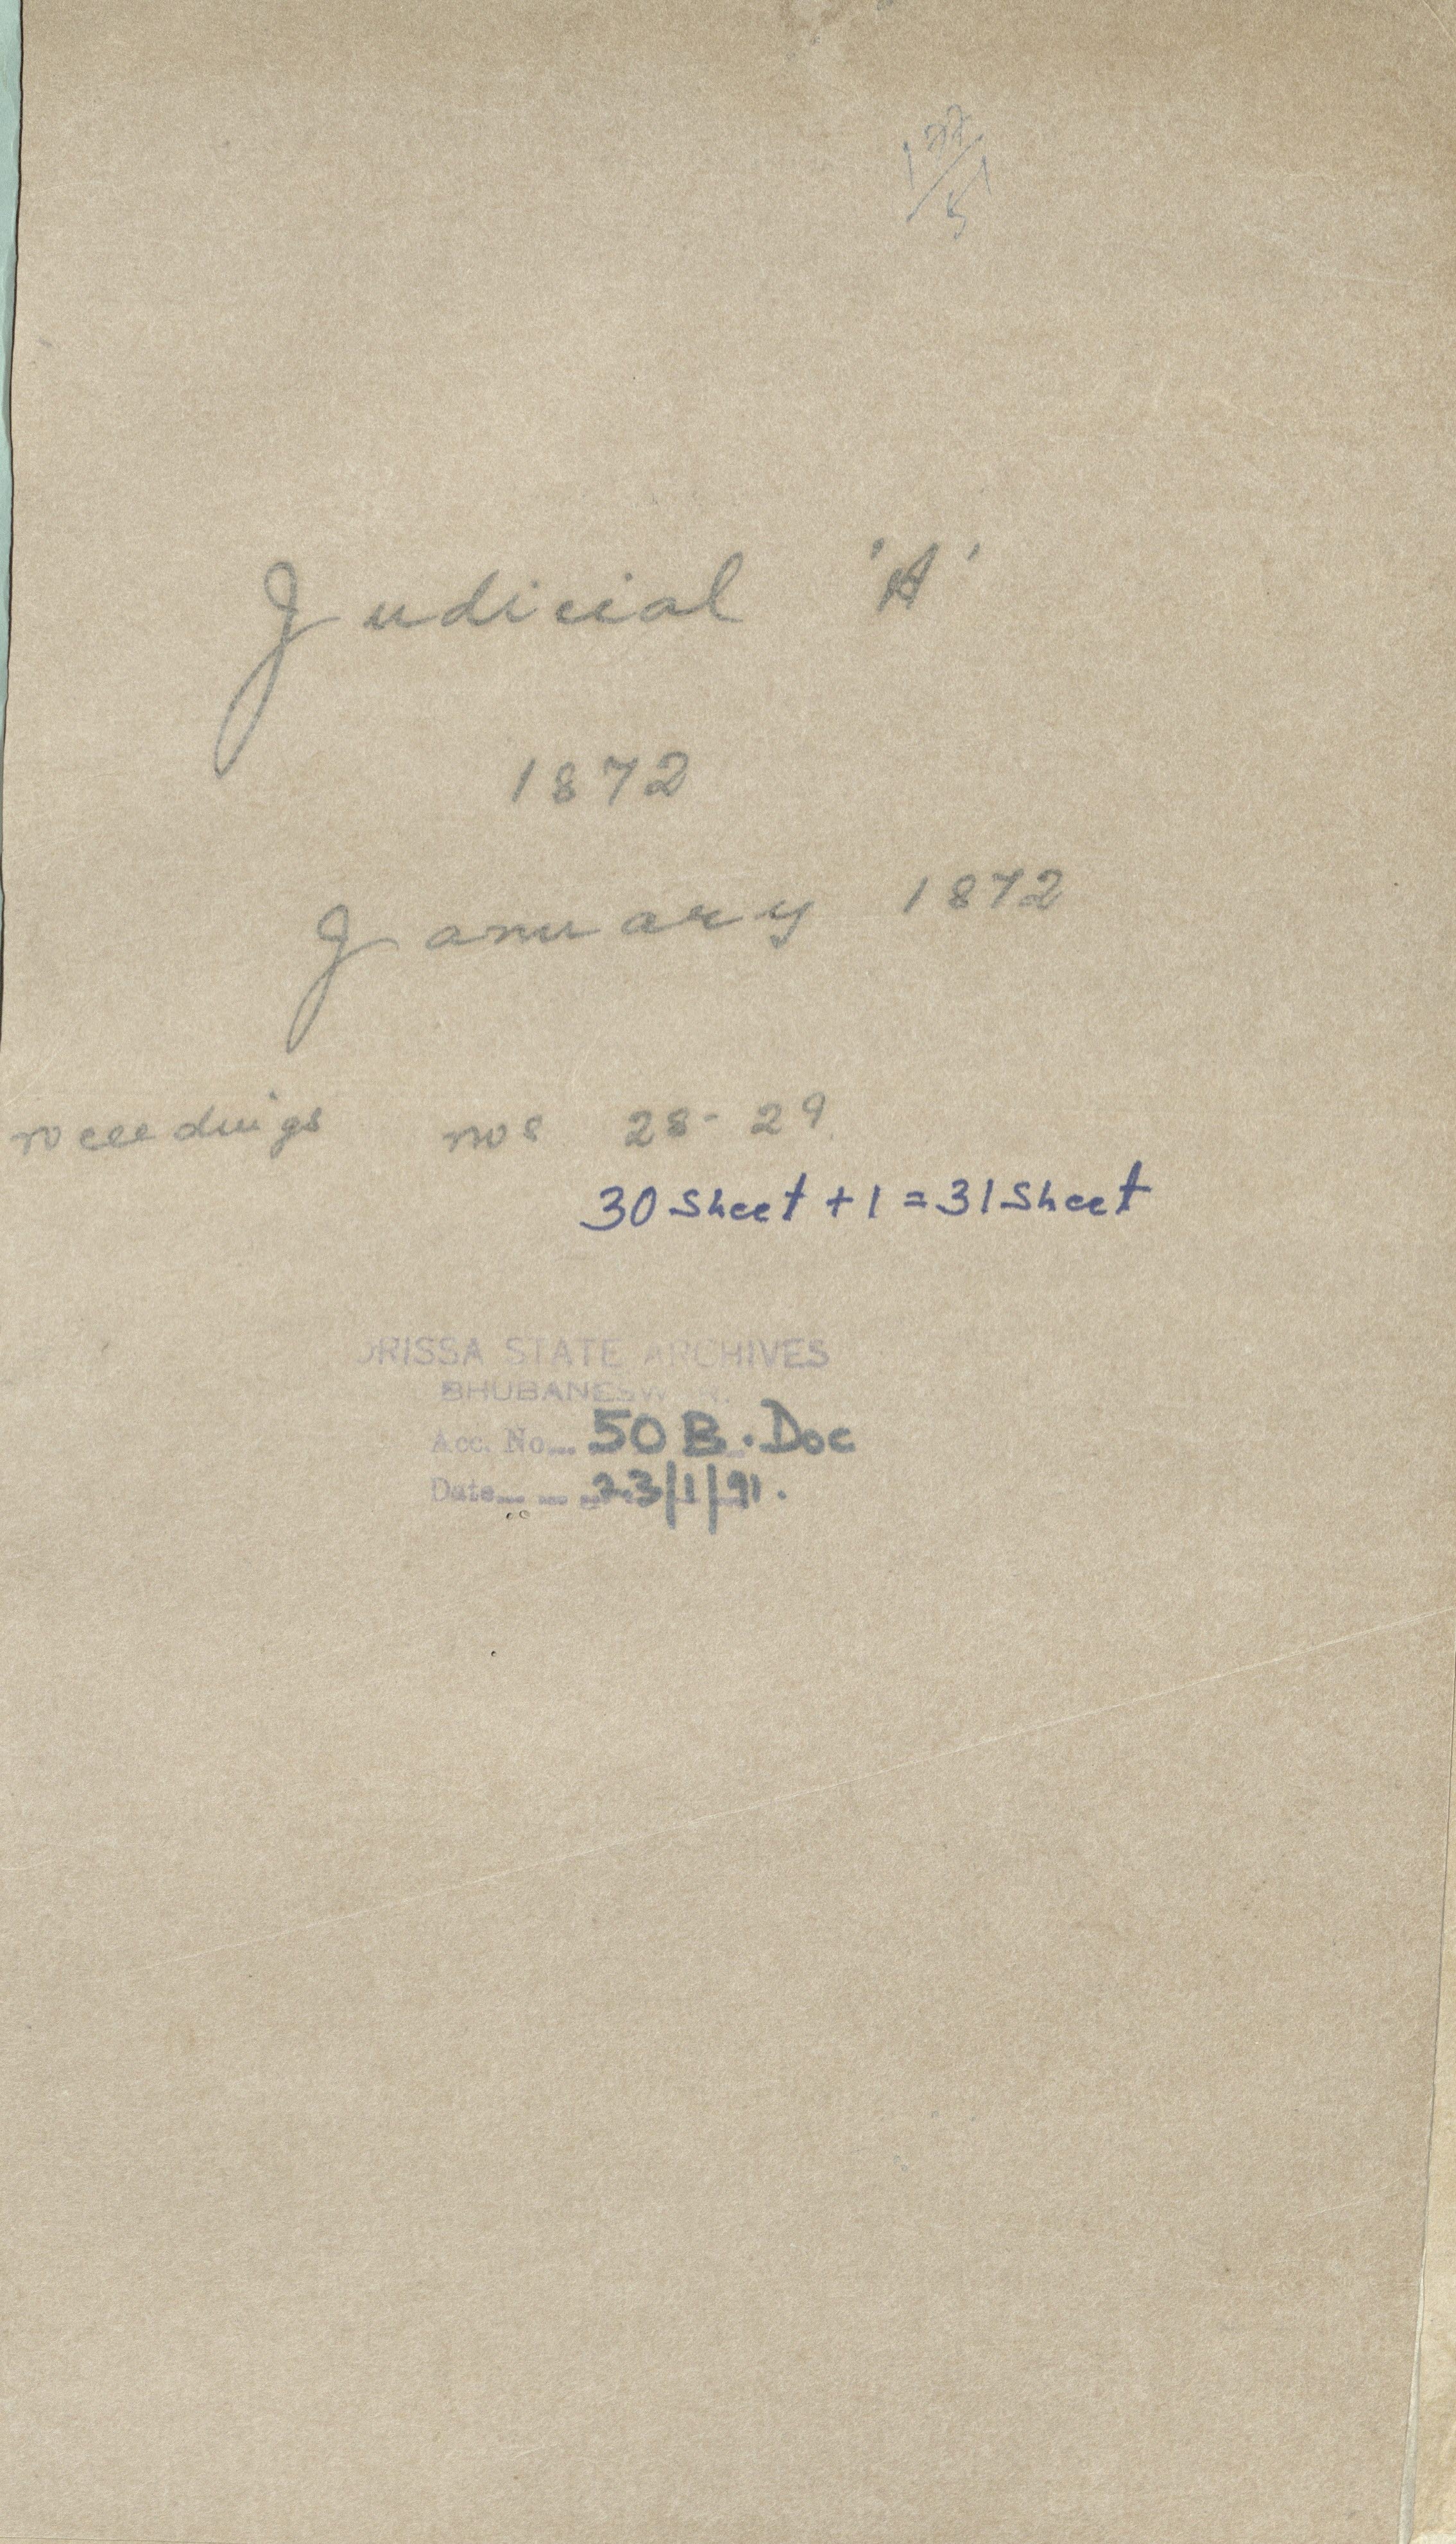 Judicial 'A'
1872
January 1872
roceedings nos 28-29
30 Sheet + 1 = 31 Sheet
ORISSA STATE ARCHIVES
BHUBANESW
Acc. No... 50 B. Doc
Date... 23/1/91.